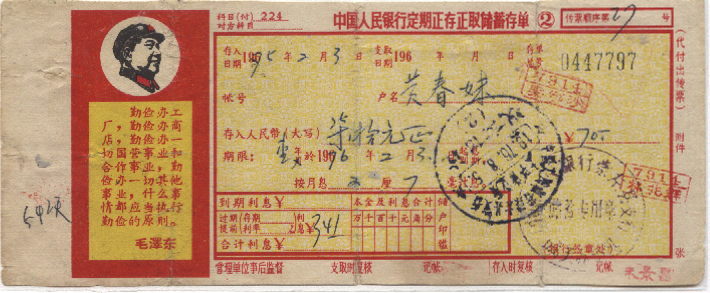 科目(付) 224
对方科目
中国人民银行定期正存正取储蓄存单
②
传票顺序第 27 号
存入日期 1975年2月3日
支取日期 196 年 月 日
0447797
帐号
户名 黄春妹
7911
存入人民币(大写) 柒拾元正
¥70
期限: 壹 1976 2 3
按月息 2 厘 7
7911
到期利息¥
本金及利息合计
过期(存期) 利息¥ 3.41
提前(利率)
万千百十元角分
合计利息¥
储户印鉴
管理单位事后监督
支取时复核
记帐
存入时复核
记帐
(代付出传票)
附件
张
勤俭办工
厂，勤俭办商
店，勤俭办一
切国营事业和
合作事业，勤
俭办一切其他
事业，什么事
情都应当执行
勤俭的原则。
毛泽东